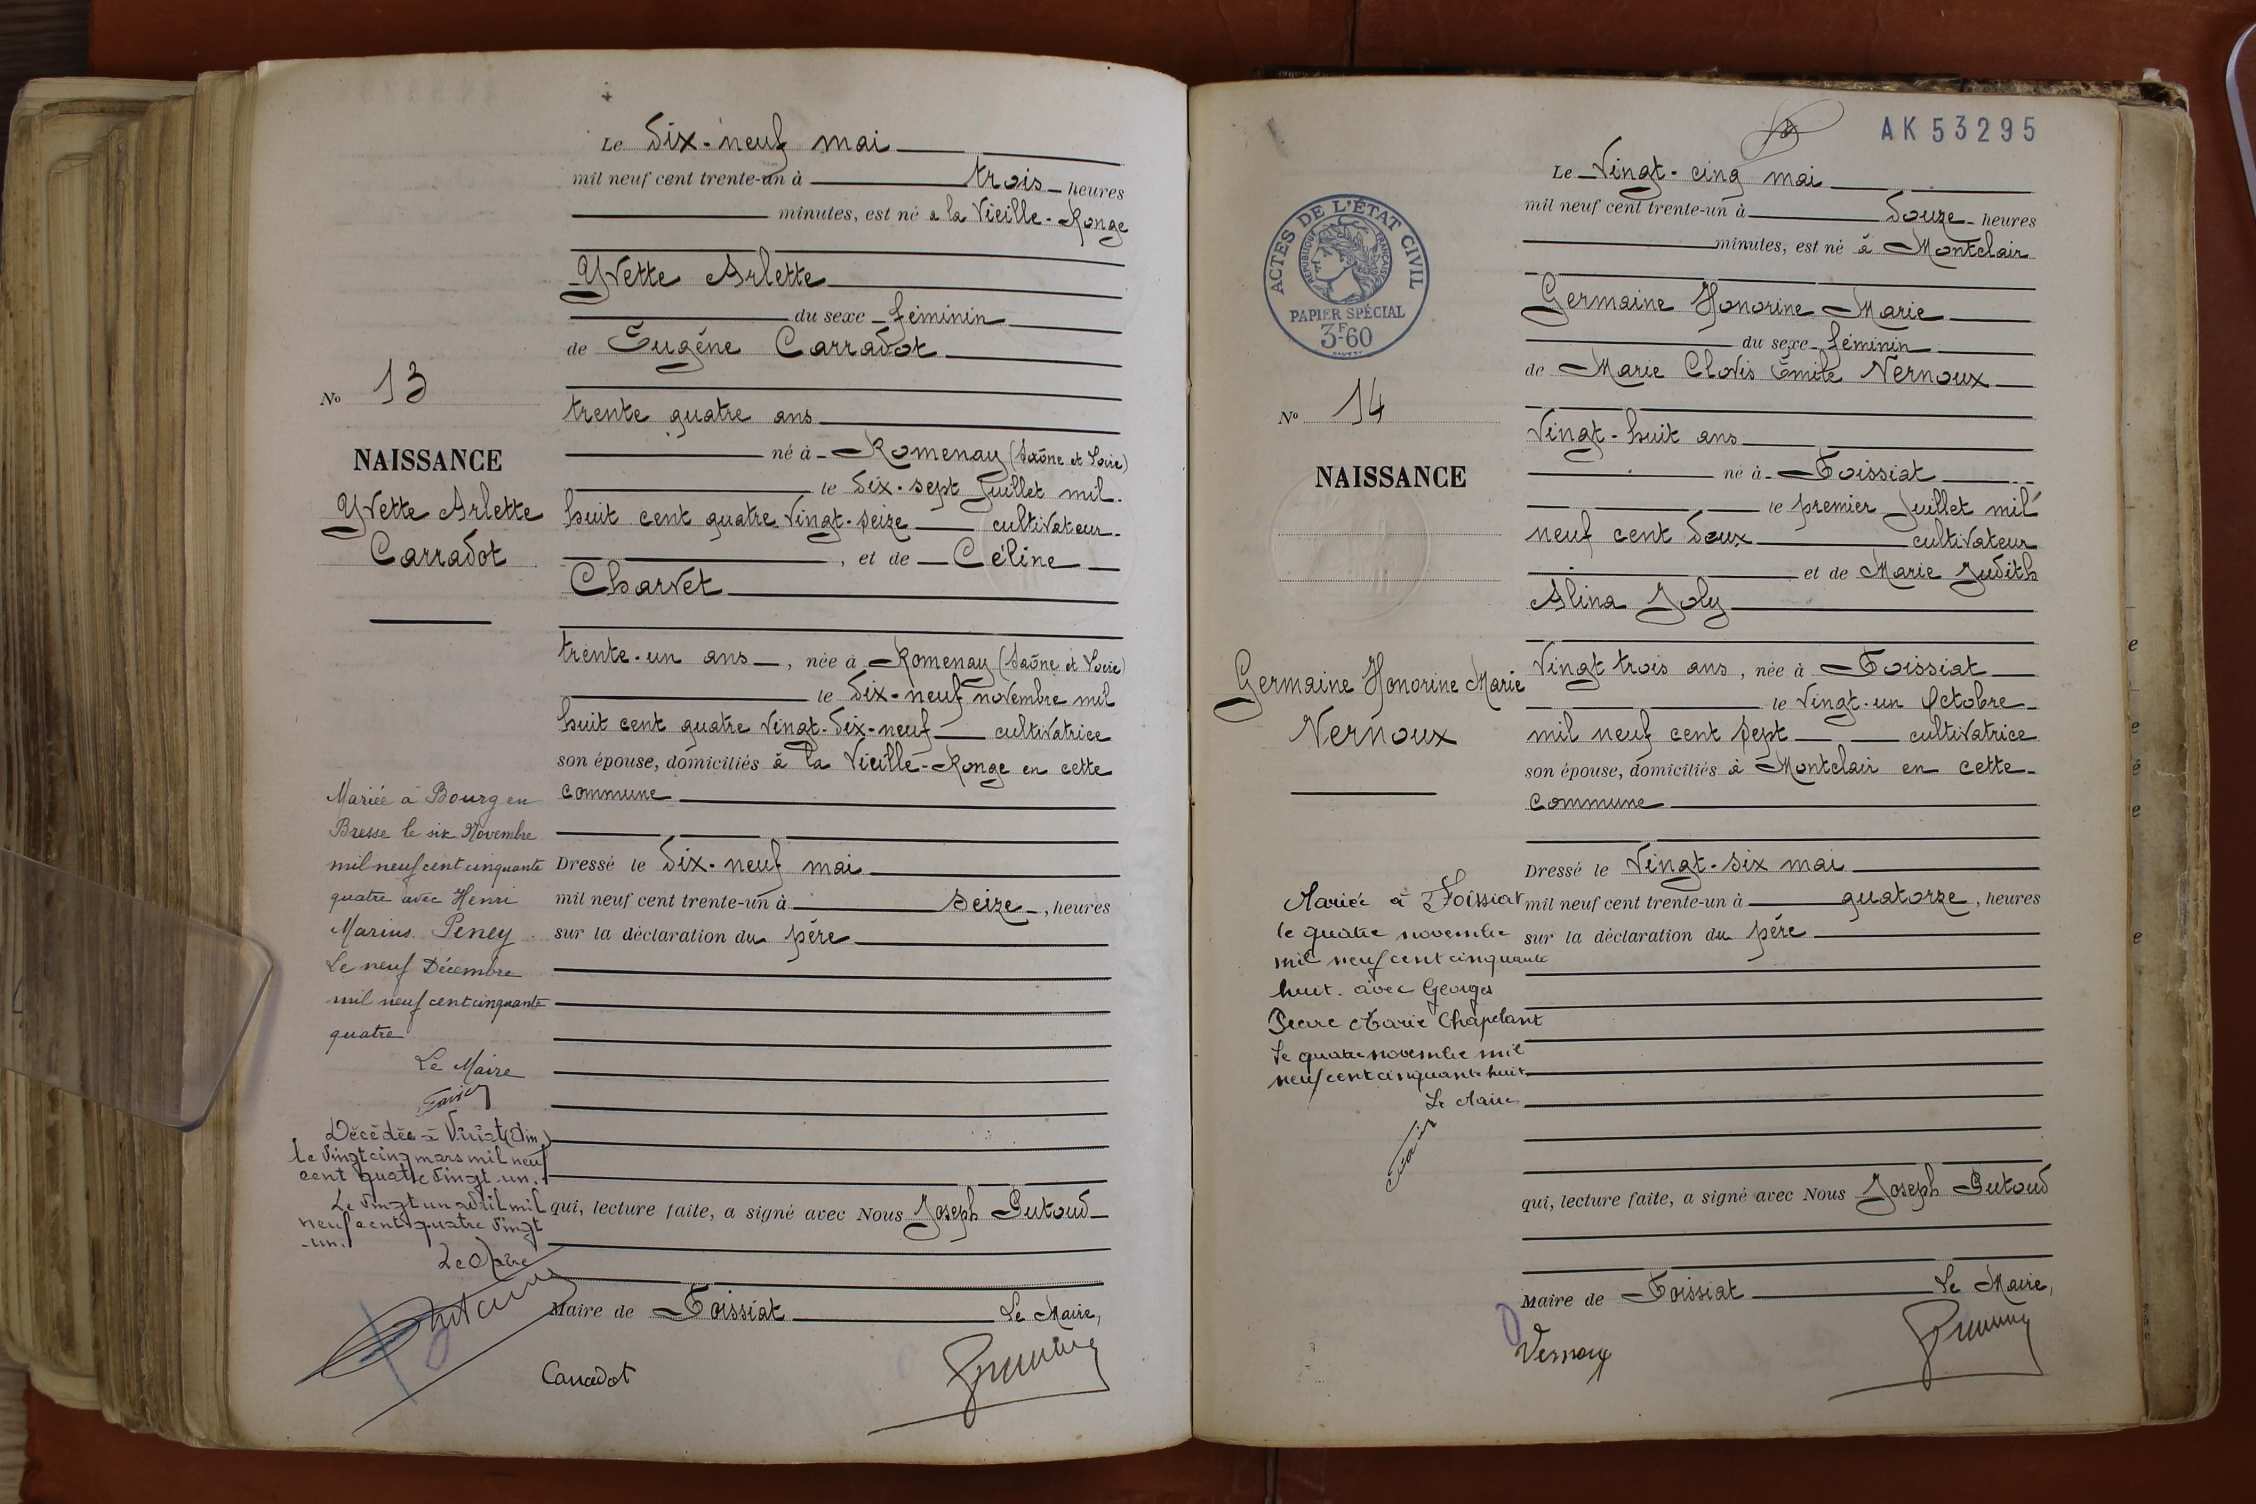 Le dix-neuf mai
mil neuf cent trente-un à trois heures
minutes, est né à la Vieille-Ronge
Yvette Arlette
du sexe féminin
de Eugène Carradot
trente quatre ans
né à Romenay (Saône et Loire)
le dix-sept Juillet mil
huit cent quatre vingt-seize cultivateur
, et de Céline
Charvet
trente-un ans, née à Romenay (Saône et Loire)
le dix-neuf novembre mil
huit cent quatre vingt-dix-neuf cultivatrice
son épouse, domiciliés à la Vieille-Ronge en cette
commune
Dressé le dix-neuf mai
mil neuf cent trente-un à seize, heures
sur la déclaration du père
qui, lecture faite, a signé avec Nous Joseph Putoud
Maire de Foissiat Le Maire,
Carradot
No 13
NAISSANCE
Yvette Arlette
Carradot
Mariée à Bourg en
Bresse le six Novembre
mil neuf cent cinquante
quatre avec Henri
Marius Peney
Le neuf Décembre
mil neuf cent cinquante
quatre
Le Maire
Décédée à Viriat (Ain)
le vingt cinq mars mil neuf
cent quatre vingt un.
Le vingt un avril mil
neuf cent quatre vingt
un.
Le Maire
AK53295
Le Vingt-cinq mai
mil neuf cent trente-un à douze heures
minutes, est né à Montclair
Germaine Honorine Marie
du sexe féminin
de Marie Clovis Émile Vernoux
Vingt-huit ans
né à Foissiat
le premier Juillet mil
neuf cent deux cultivateur
et de Marie Judith
Alina Joly
Vingt trois ans, née à Foissiat
le vingt-un Octobre
mil neuf cent sept cultivatrice
son épouse, domiciliés à Montclair en cette
commune
Dressé le Vingt-six mai
mil neuf cent trente-un à quatorze, heures
sur la déclaration du père
qui, lecture faite, a signé avec Nous Joseph Putoud
Maire de Foissiat Le Maire,
Vernoux
ACTES DE L'ÉTAT CIVIL
RÉPUBLIQUE FRANÇAISE
PAPIER SPÉCIAL
3F60
No 14
NAISSANCE
Germaine Honorine Marie
Vernoux
Mariée à Foissiat
le quatre novembre
mil neuf cent cinquante
huit avec Georges
Pierre Marie Chapelant
Le quatre novembre mil
neuf cent cinquante huit
Le Maire